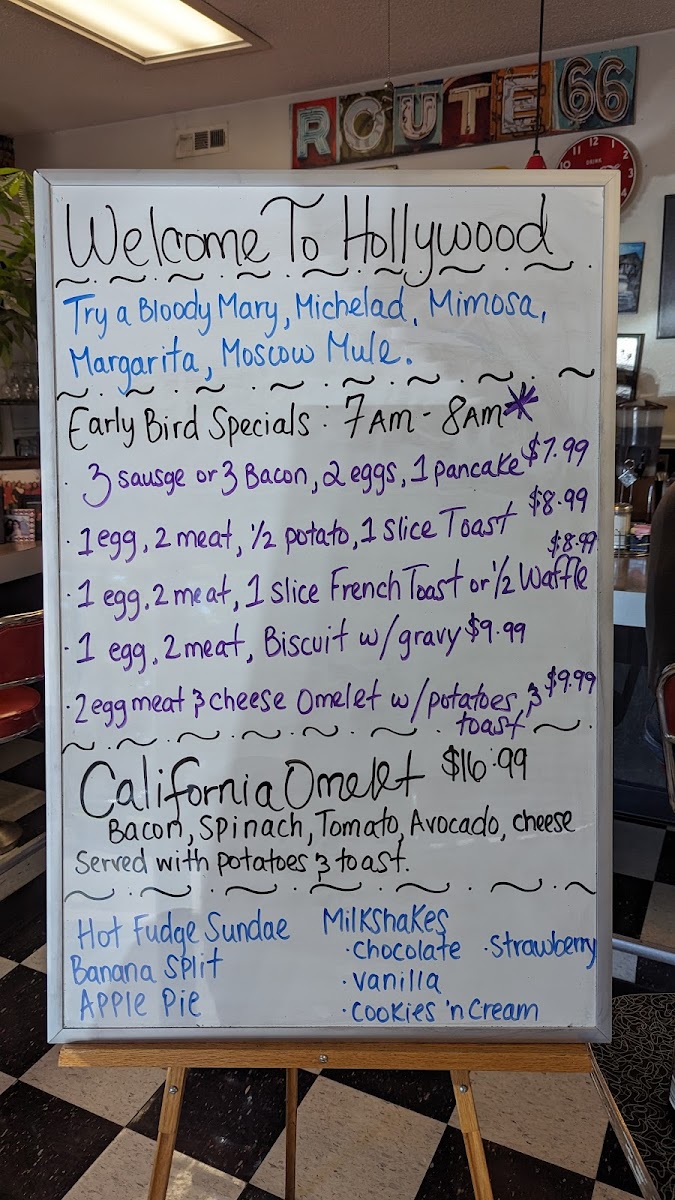 ROUTE 66
11 12 1
10 DRINK 2
3
4
Welcome To Hollywood
Try a Bloody Mary, Michelad, Mimosa,
Margarita, Moscow Mule.
Early Bird Specials : 7AM - 8AM*
· 3 sausge or 3 Bacon, 2 eggs, 1 pancake $7.99
· 1 egg, 2 meat, 1/2 potato, 1 slice Toast $8.99
· 1 egg, 2 meat, 1 slice French Toast or 1/2 Waffle $8.99
· 1 egg, 2 meat, Biscuit w/ gravy $9.99
· 2 egg meat & cheese Omelet w/ potatoes, & $9.99
toast
California Omelet $16.99
Bacon, Spinach, Tomato, Avocado, cheese
Served with potatoes & toast.
Hot Fudge Sundae Milkshakes
Banana Split · Chocolate · Strawberry
Apple Pie · Vanilla
· Cookies 'n Cream